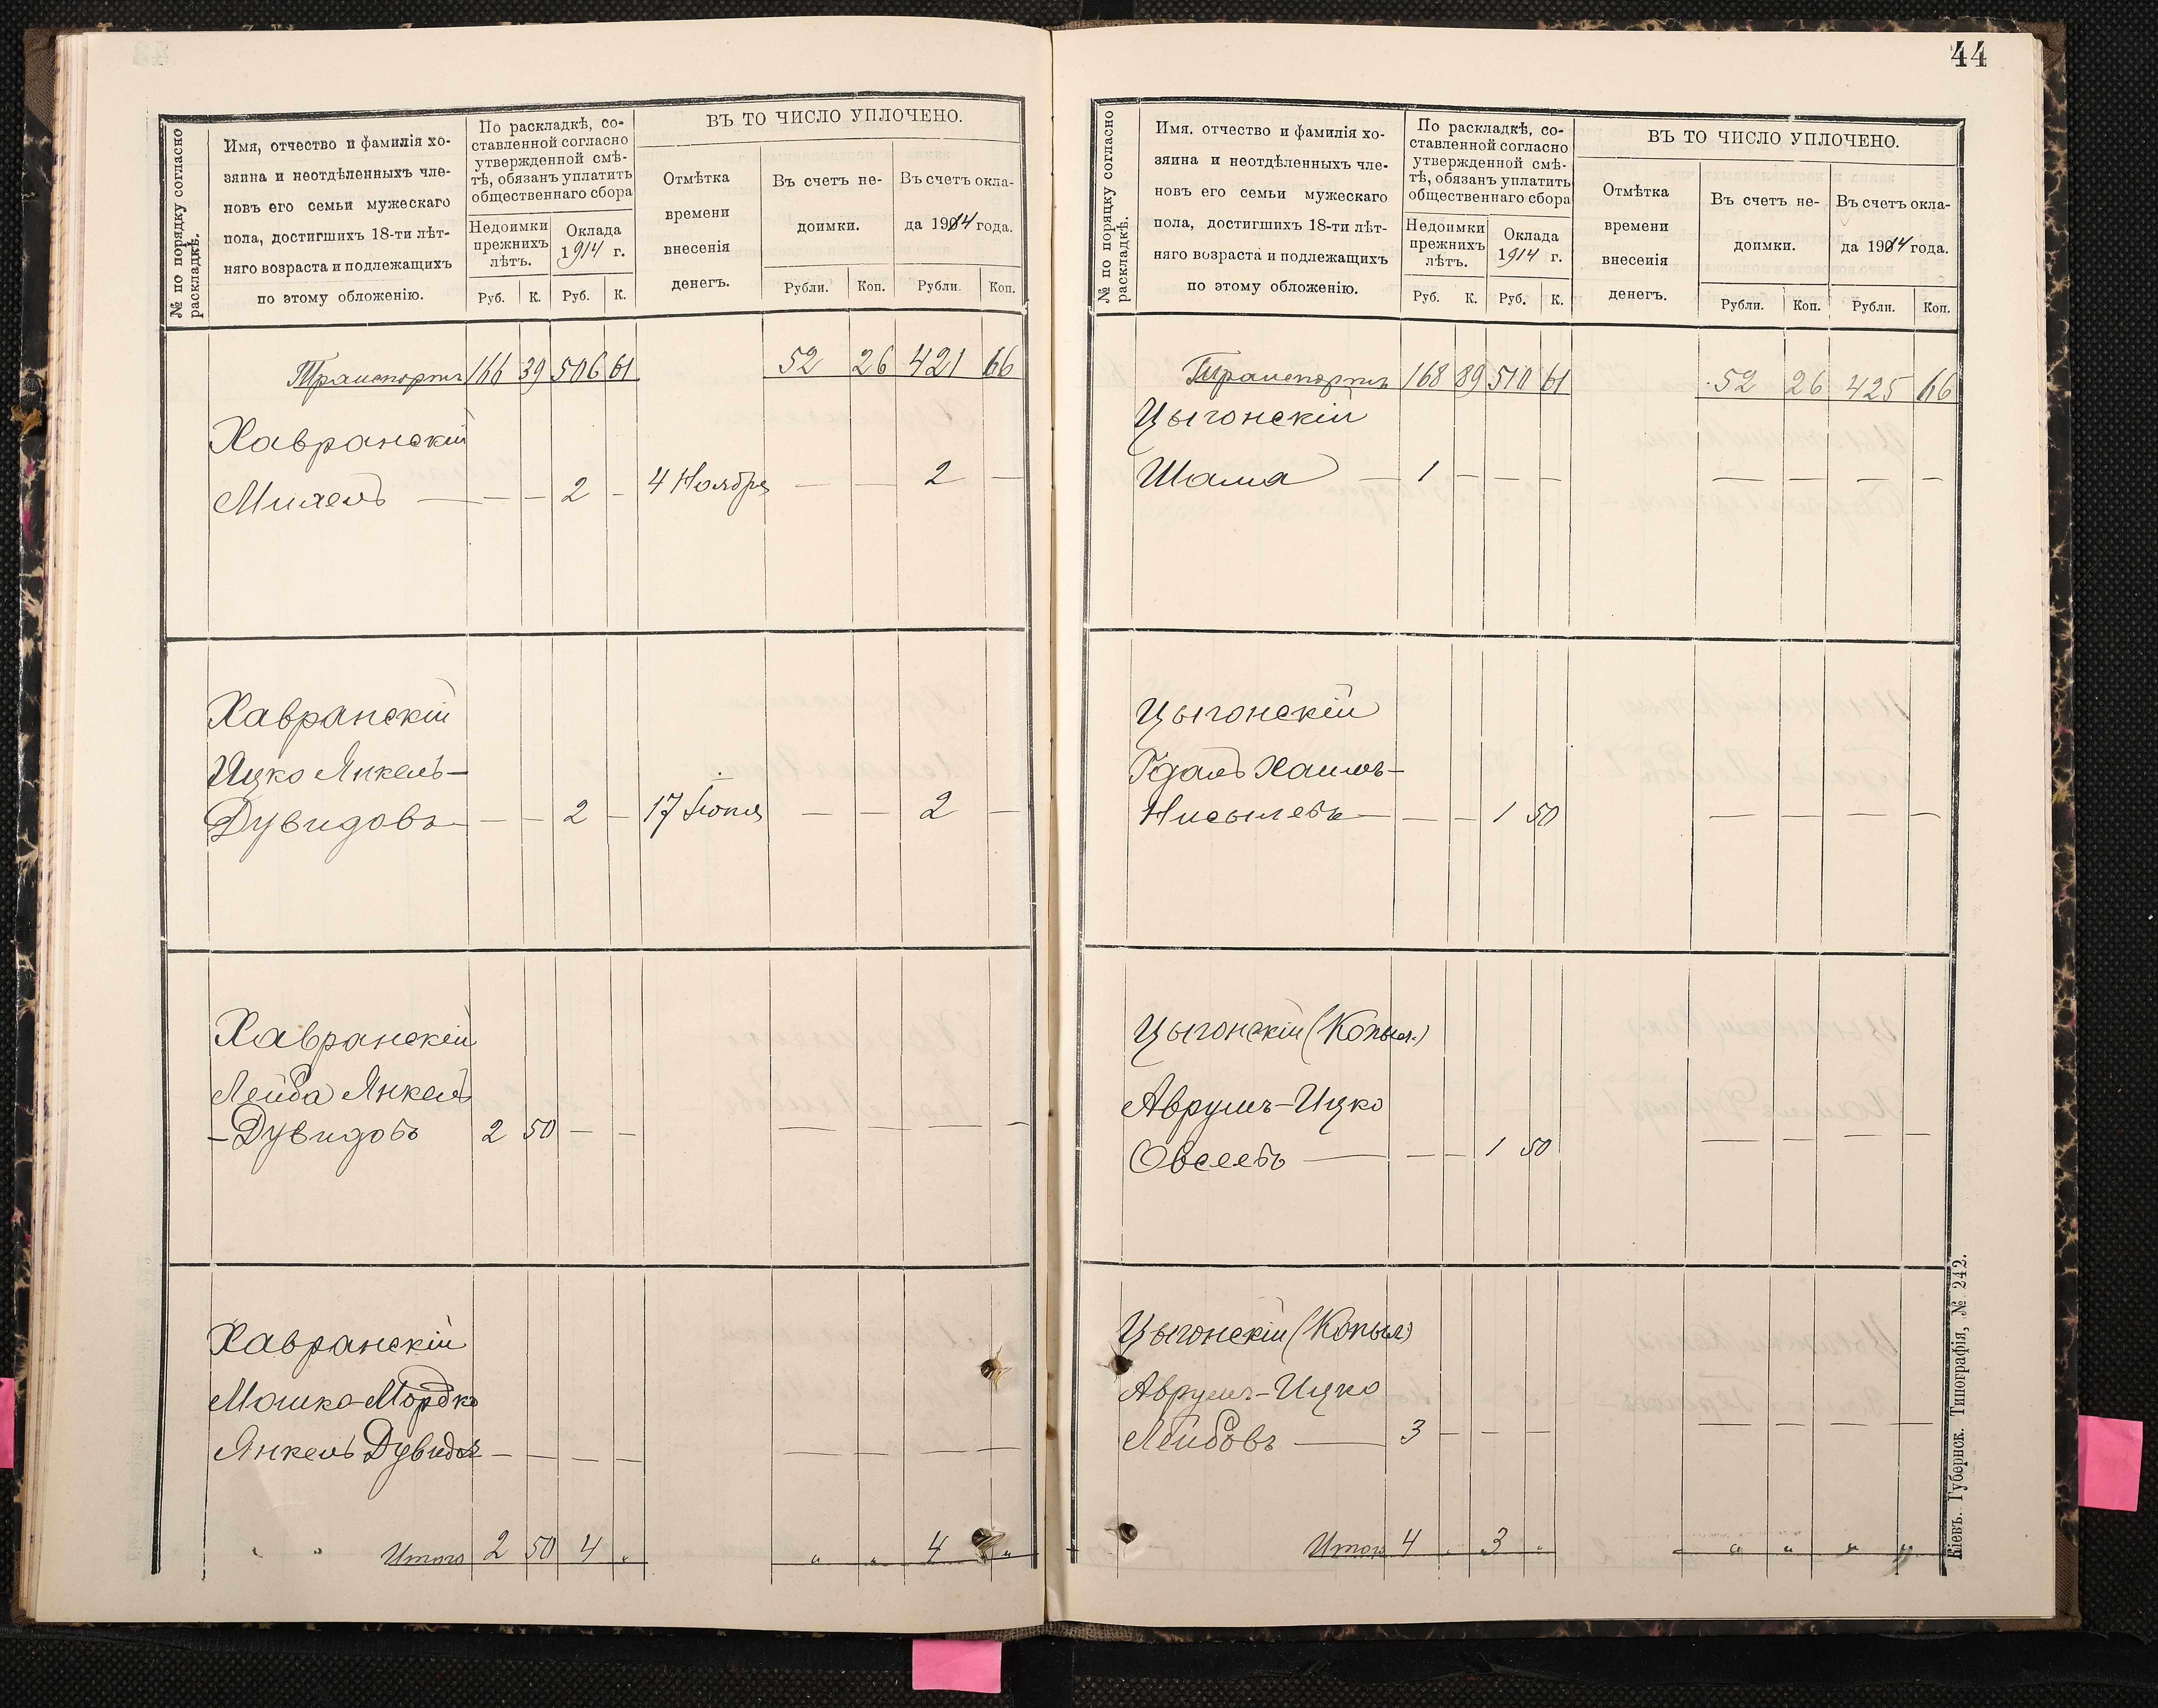 № по порядку согласно
раскладкѣ.
Имя, отчество и фамилія хо-
зяина и неотдѣленныхъ чле-
новъ его семьи мужескаго
пола, достигшихъ 18-ти лѣт-
няго возраста и подлежащихъ
по этому обложенію.
По раскладкѣ, со-
ставленной согласно
утвержденной смѣ-
тѣ, обязанъ уплатить
общественнаго сбора
Недоимки
прежнихъ
лѣтъ.
Оклада
1914 г.
Руб. К. Руб. К.
ВЪ ТО ЧИСЛО УПЛОЧЕНО.
Отмѣтка
времени
внесенія
денегъ.
Въ счетъ не-
доимки.
Въ счетъ окла-
да 1914 года.
Рубли. Коп. Рубли. Коп.
Транспортъ 166 39 506 61 52 26 421 66
Хавранскій
Михель — — — 2 — 4 Ноября — — 2 —
Хавранскій
Ицко Янкель-
Дувидовъ — — 2 — 17 Іюня — — 2 —
Хавранскій
Лейба Янкель
-Дувидовъ 2 50 — — — — — —
Хавранскій
Мошко-Мордко
Янкель Дувидов — — — — — — — —
Итого 2 50 4 " " " 4 "
44
№ по порядку согласно
раскладкѣ.
Имя, отчество и фамилія хо-
зяина и неотдѣленныхъ чле-
новъ его семьи мужескаго
пола, достигшихъ 18-ти лѣт-
няго возраста и подлежащихъ
по этому обложенію.
По раскладкѣ, со-
ставленной согласно
утвержденной смѣ-
тѣ, обязанъ уплатить
общественнаго сбора
Недоимки
прежнихъ
лѣтъ.
Оклада
1914 г.
Руб. К. Руб. К.
ВЪ ТО ЧИСЛО УПЛОЧЕНО.
Отмѣтка
времени
внесенія
денегъ.
Въ счетъ не-
доимки.
Въ счетъ окла-
да 1914 года.
Рубли. Коп. Рубли. Коп.
Транспортъ 168 89 510 61 52 26 425 66
Цыгонскій
Шама — 1 — — — — — — —
Цыгонскій
Гдаль Хаимъ-
Нисылевъ — — — 1 50 — — — —
Цыгонскій (Копыл.)
Аврумъ-Ицко
Овсеевъ — — — 1 50 — — — —
Цыгонскій (Копыл.)
Аврумъ-Ицко
Лейбовъ — 3 — — — — — — —
Итого 4 " 3 " " " " "
Кіевъ. Губернск. Типографія, № 242.